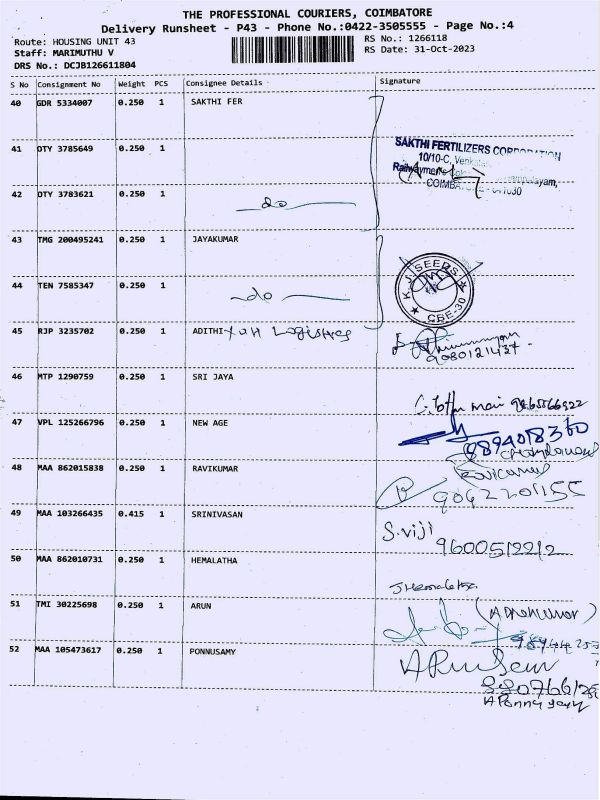 THE PROFESSIONAL COURIERS, COIMBATORE
Delivery Runsheet - P43 - Phone No.:0422-3505555 - Page No.:4
Route: HOUSING UNIT 43 RS No.: 1266118
Staff: MARIMUTHU V RS Date: 31-Oct-2023
DRS No.: DCJB126611804
S No Consignment No Weight PCS Consignee Details Signature
40 GDR 5334007 0.250 1 SAKTHI FER
41 OTY 3785649 0.250 1
SAKTHI FERTILIZERS CORPORATION
10/10-C,
42 OTY 3783621 0.250 1
do
43 TMG 200495241 0.250 1 JAYAKUMAR
K.J. SEEDS
CBE-30
44 TEN 7585347 0.250 1
do
45 RJP 3235702 0.250 1 ADITHI Logistics
9080121437
46 MTP 1290759 0.250 1 SRI JAYA
47 VPL 125266796 0.250 1 NEW AGE
9894018360
48 MAA 862015838 0.250 1 RAVIKUMAR
9042201155
49 MAA 103266435 0.415 1 SRINIVASAN
S.viji
9600512212
50 MAA 862010731 0.250 1 HEMALATHA
J Hemalatha
51 TMI 30225698 0.250 1 ARUN
52 MAA 105473617 0.250 1 PONNUSAMY